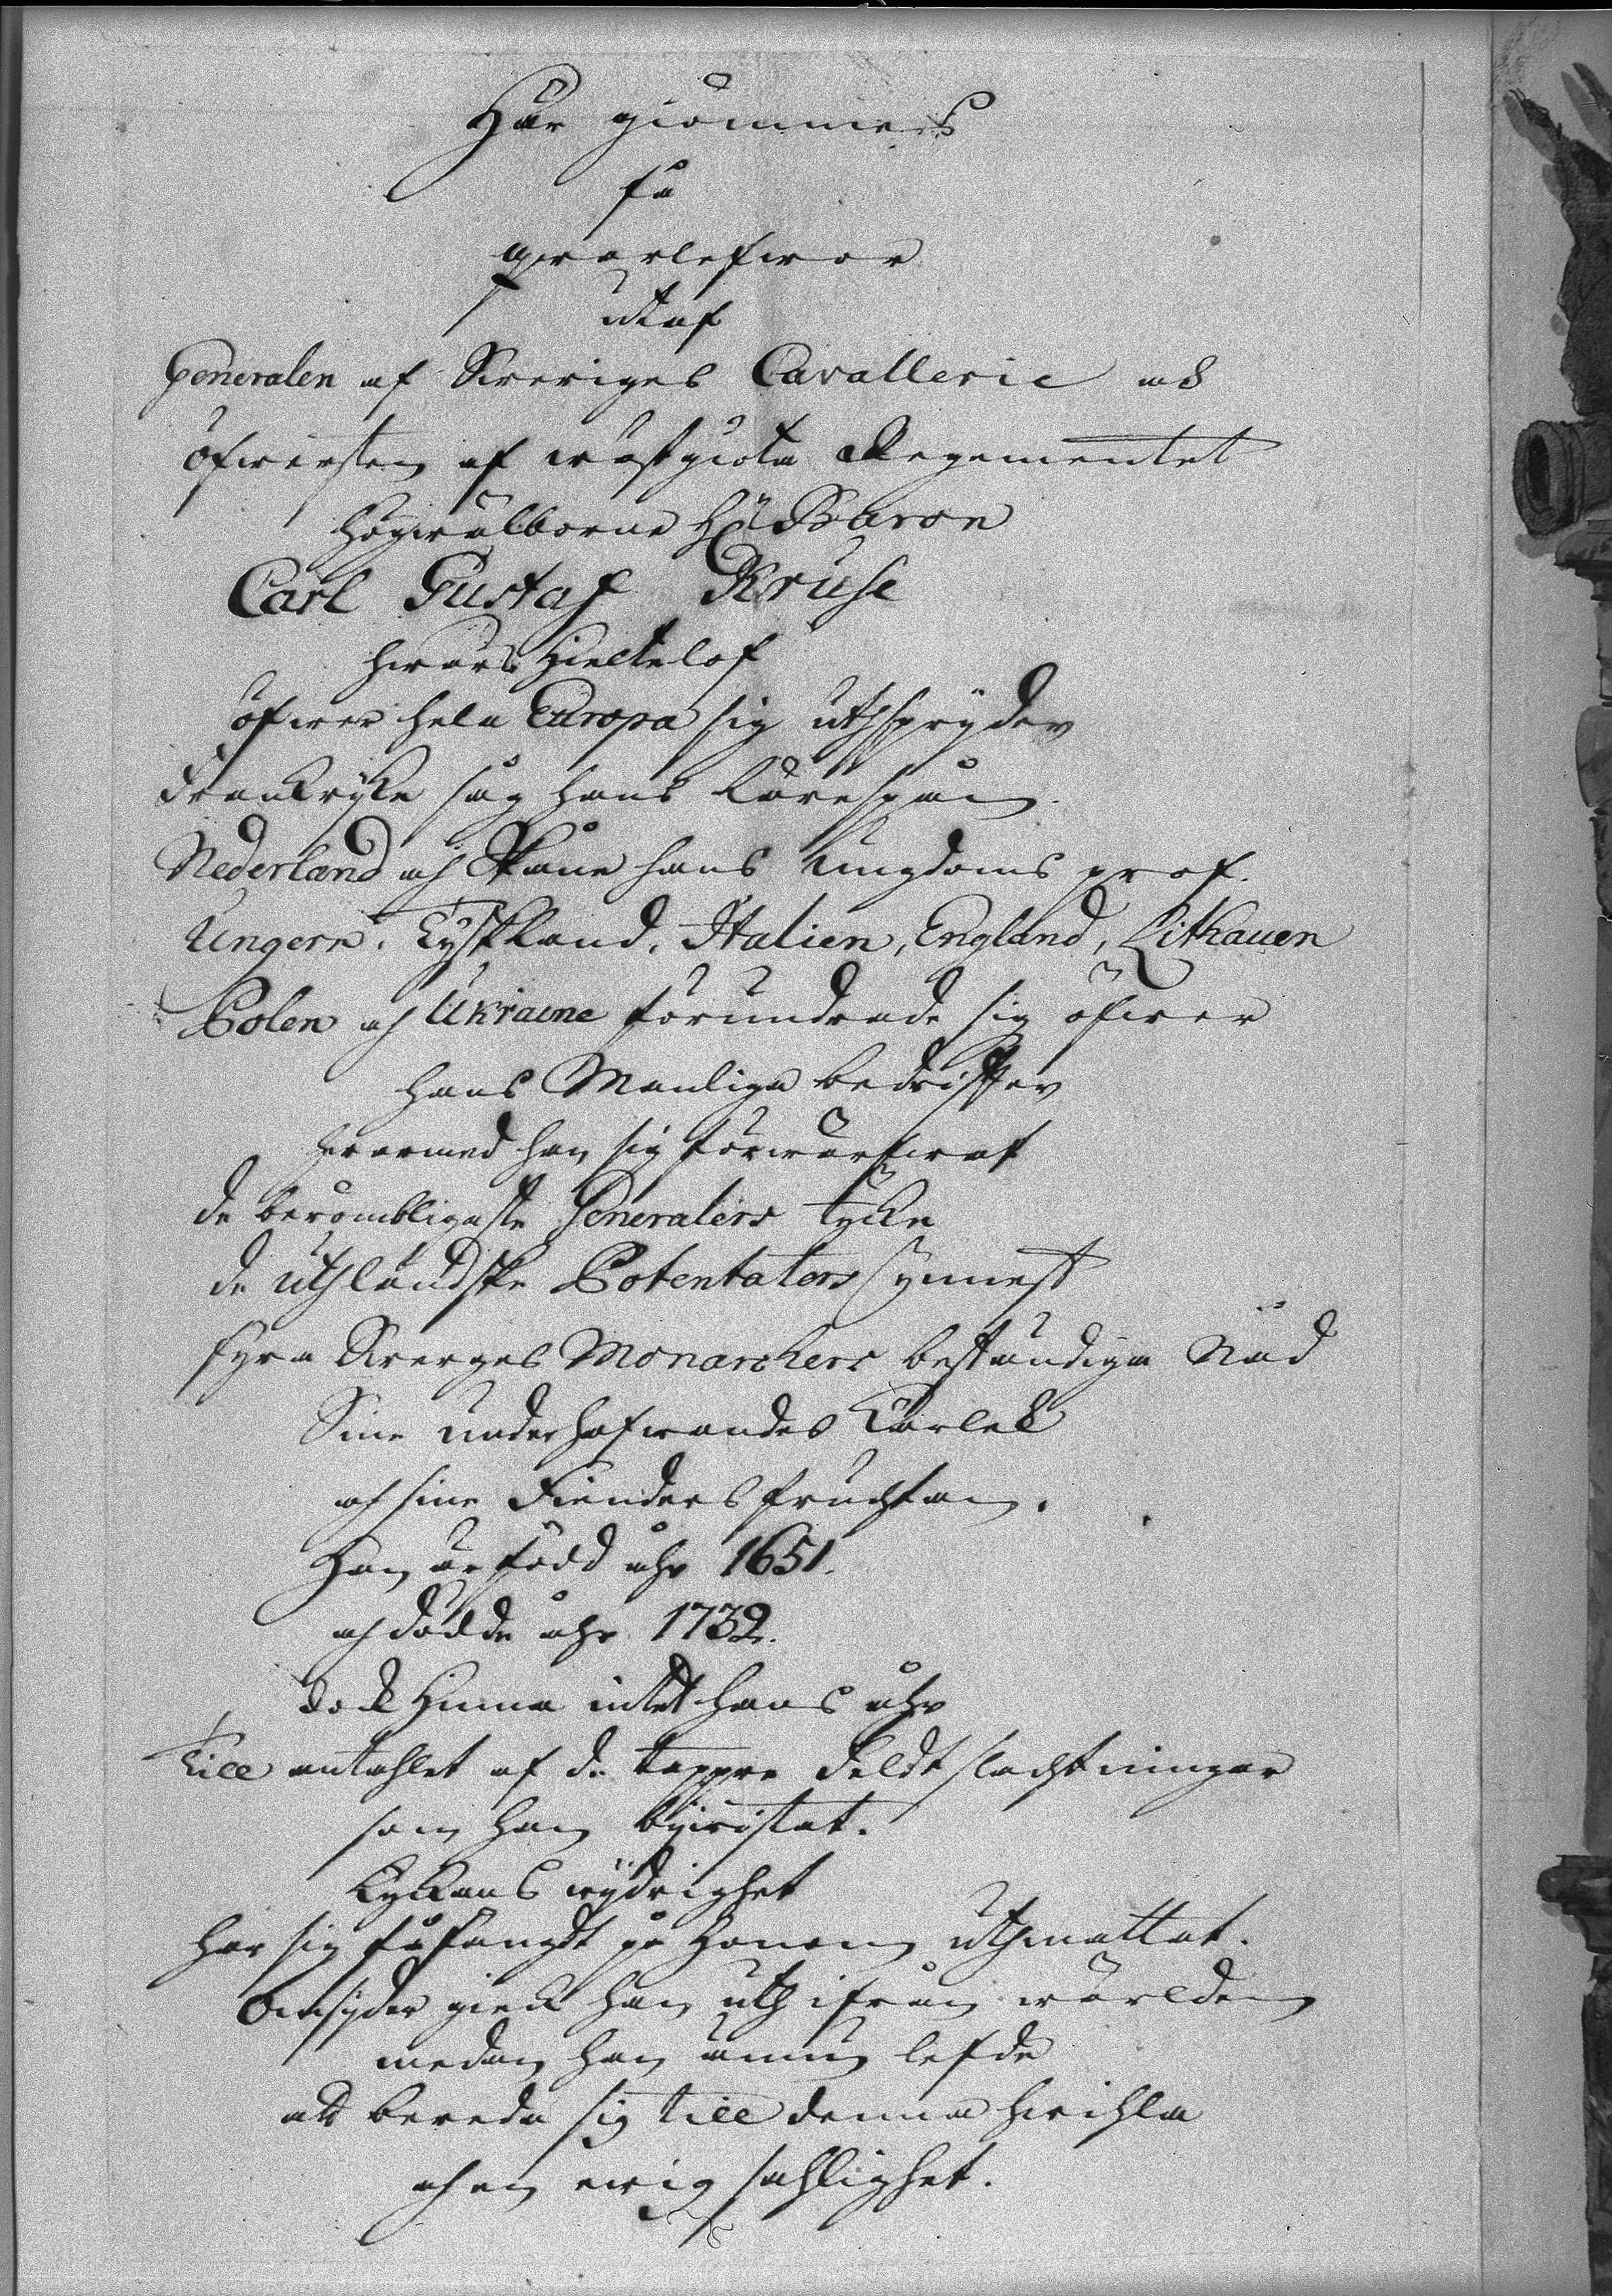 Här giömmes
få
qwarlefwor
utaf
Generalen af Sweriges Cavallerie och
öfwersten af wästgiöta Regementet
högwälborne H: Baron
Carl Gustaf Kruse
hwars Hieltelof
öfwer hela Europa sig uthspryder
Franckryke såg hans Lärespån.
Nederland och Skåne hans ungdoms prof.
Ungern, Tyskland, Italien, England, Lithauen
Polen och Ukraine förundrade sig öfwer
hans Manliga bedrifter
hwarmed han sig förwärfwat
de berömbligaste Generalers tycke
de uthländske Potentaters Gunnest
fyra Swerges Monarchers beständiga Nåd
Sine underhafwandes Kärlek
och sine Fienders fruchtan.
Han är född åhr 1651.
och dödde åhr 1732.
dock Hinna intet hans åhr
till antahlet af de tappre Feldtslachtningar
som han bijwistat.
Lyckans wijdrighet
har sig fåfängt på Honom uthmattat.
Omsyder gick han uth ifrån wärlden
medan han ännu lefde
att bereda sig till denna hwihla
och en ewig sahlighet.